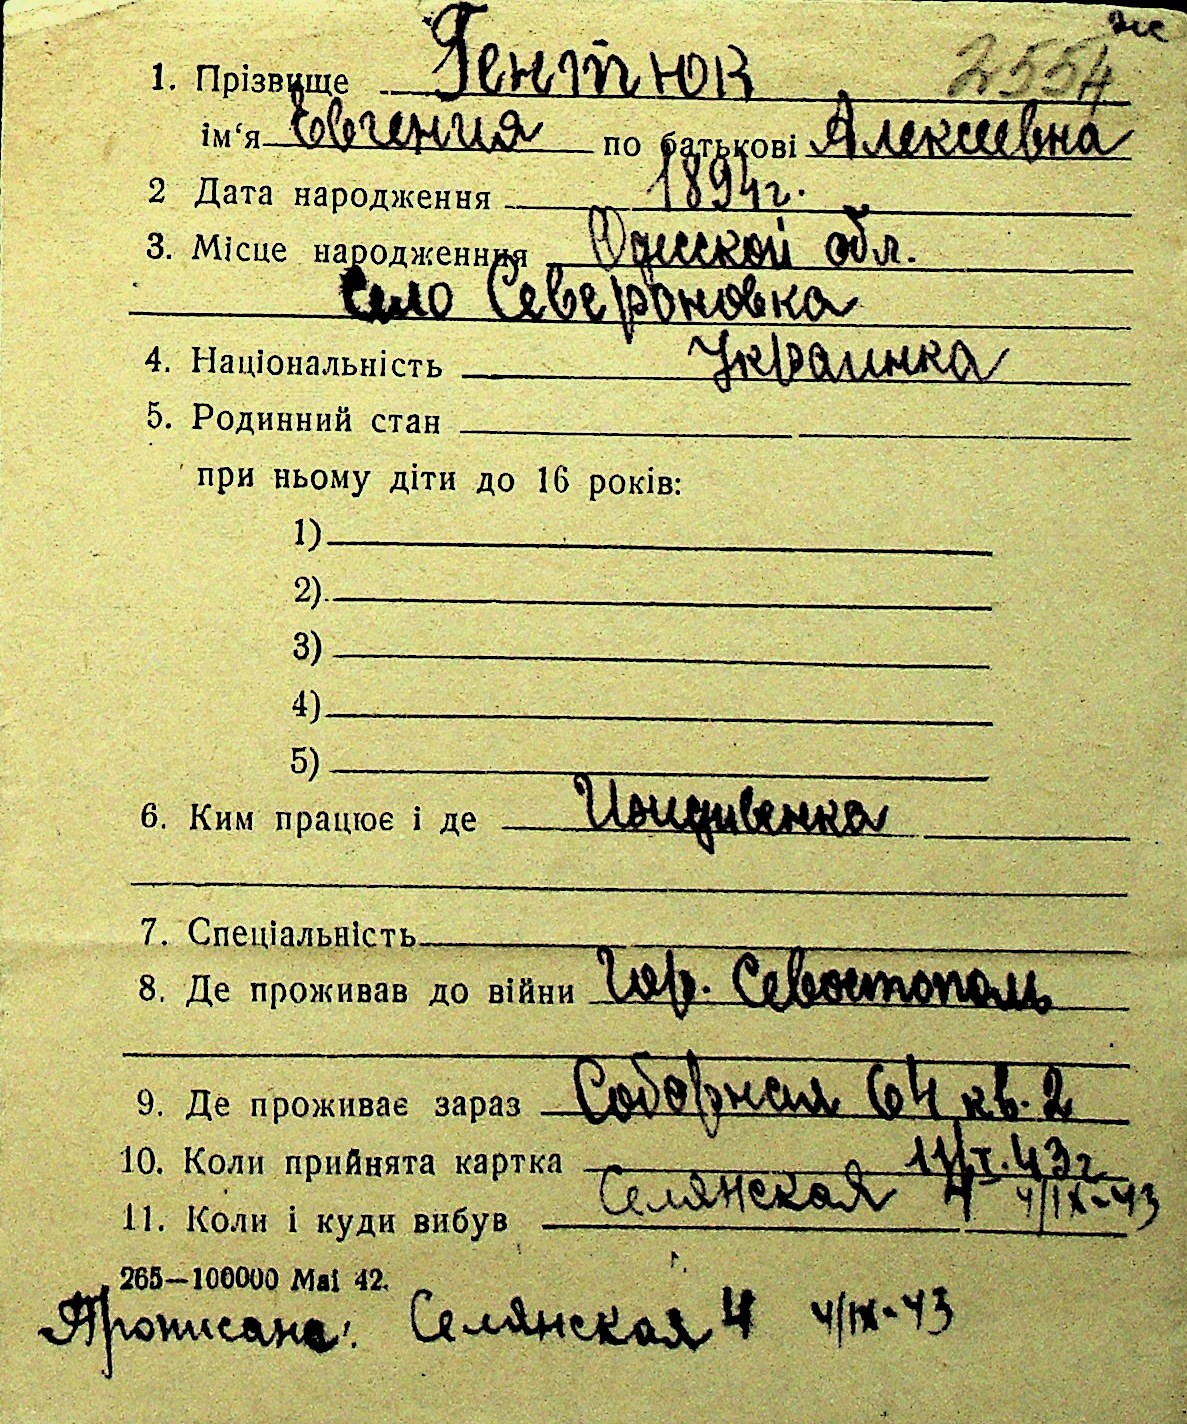 же
1. Прізвище Гентюк 2554
ім'я Евгения по батькові Алексеевна
2 Дата народження 1894г.
3. Місце народженння Одесской обл.
село Североновка
4. Національність Украинка
5. Родинний стан
при ньому діти до 16 років:
1)
2)
3)
4)
5)
6. Ким працює і де Иждивенка
7. Спеціальність
8. Де проживав до війни Гор. Севостополь
9. Де проживає зараз Соборная 64 кв. 2
10. Коли прийнята картка 11/I.43г
11. Коли і куди вибув Селянская 4 4/IX-43
265—100000 Mai 42.
Прописана: Селянская 4 4/IX-43